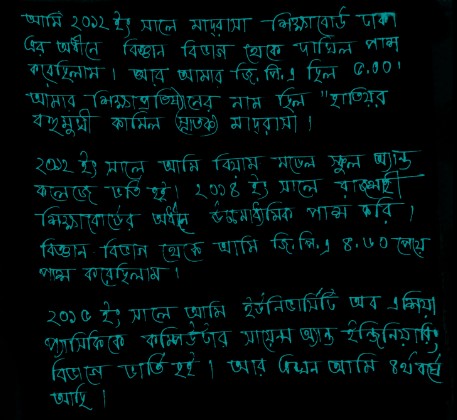 আমি ২০১২ ইং সালে মাদ্রাসা শিক্ষাবোর্ড ঢাকা
এর অধীনে বিজ্ঞান বিভাগ থেকে দাখিল পাশ
করেছিলাম। আর আমার জি.পি.এ ছিল ৫.০০।
আমার শিক্ষাপ্রতিষ্ঠানের নাম ছিল "হাতিয়র
বহুমুখী কামিল (স্নাতক) মাদ্রাসা।
২০১২ ইং সালে আমি বিয়াম মডেল স্কুল অ্যান্ড
কলেজে ভর্তি হই। ২০১৪ ইং সালে রাজশাহী
শিক্ষাবোর্ডের অধীন উচ্চমাধ্যমিক পাশ করি।
বিজ্ঞান বিভাগ থেকে আমি জি.পি.এ ৪.৬০ পেয়ে
পাশ করেছিলাম।
২০১৫ ইং সালে আমি ইউনিভার্সিটি অব এশিয়া
প্যাসিফিকে কম্পিউটার সায়েন্স অ্যান্ড ইন্জিনিয়ারিং
বিভাগে ভর্তি হই। আর এখন আমি ৪র্থ বর্ষে
আছি।